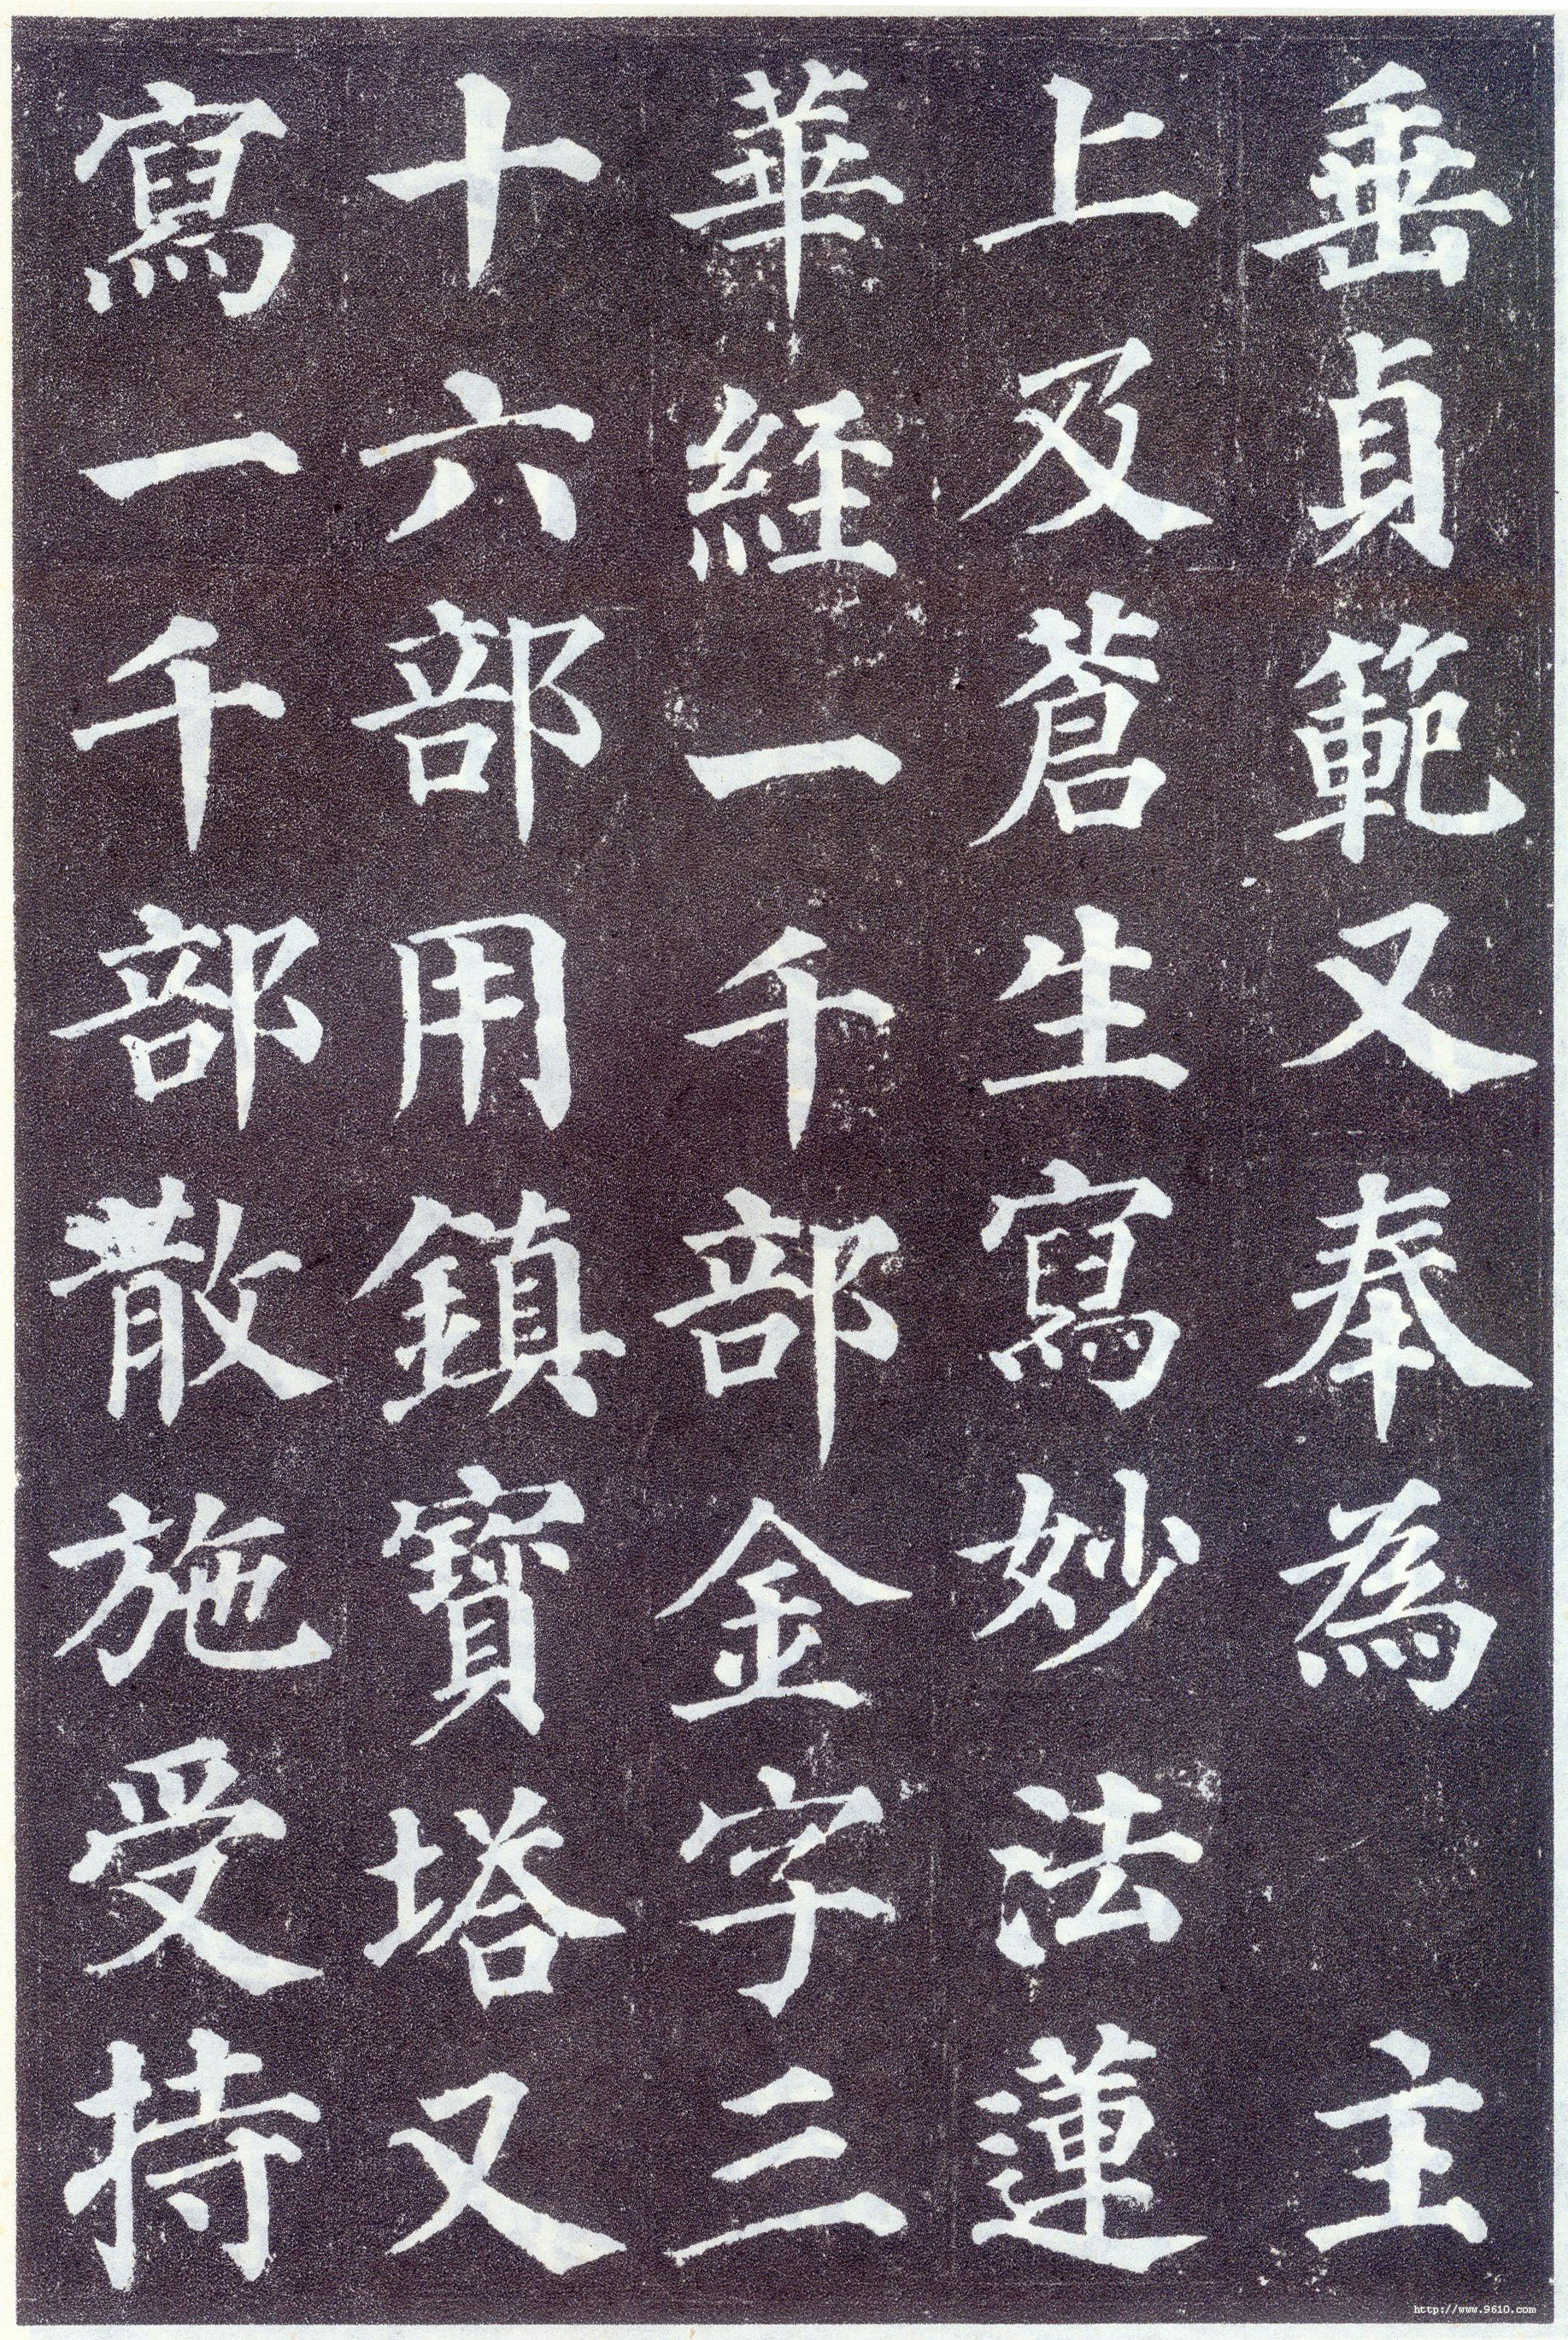 垂貞範又奉為　主
上及蒼生寫妙法蓮
華經一千部金字三
十六部用鎮寶塔又
寫一千部散施受持
http://www.9610.com